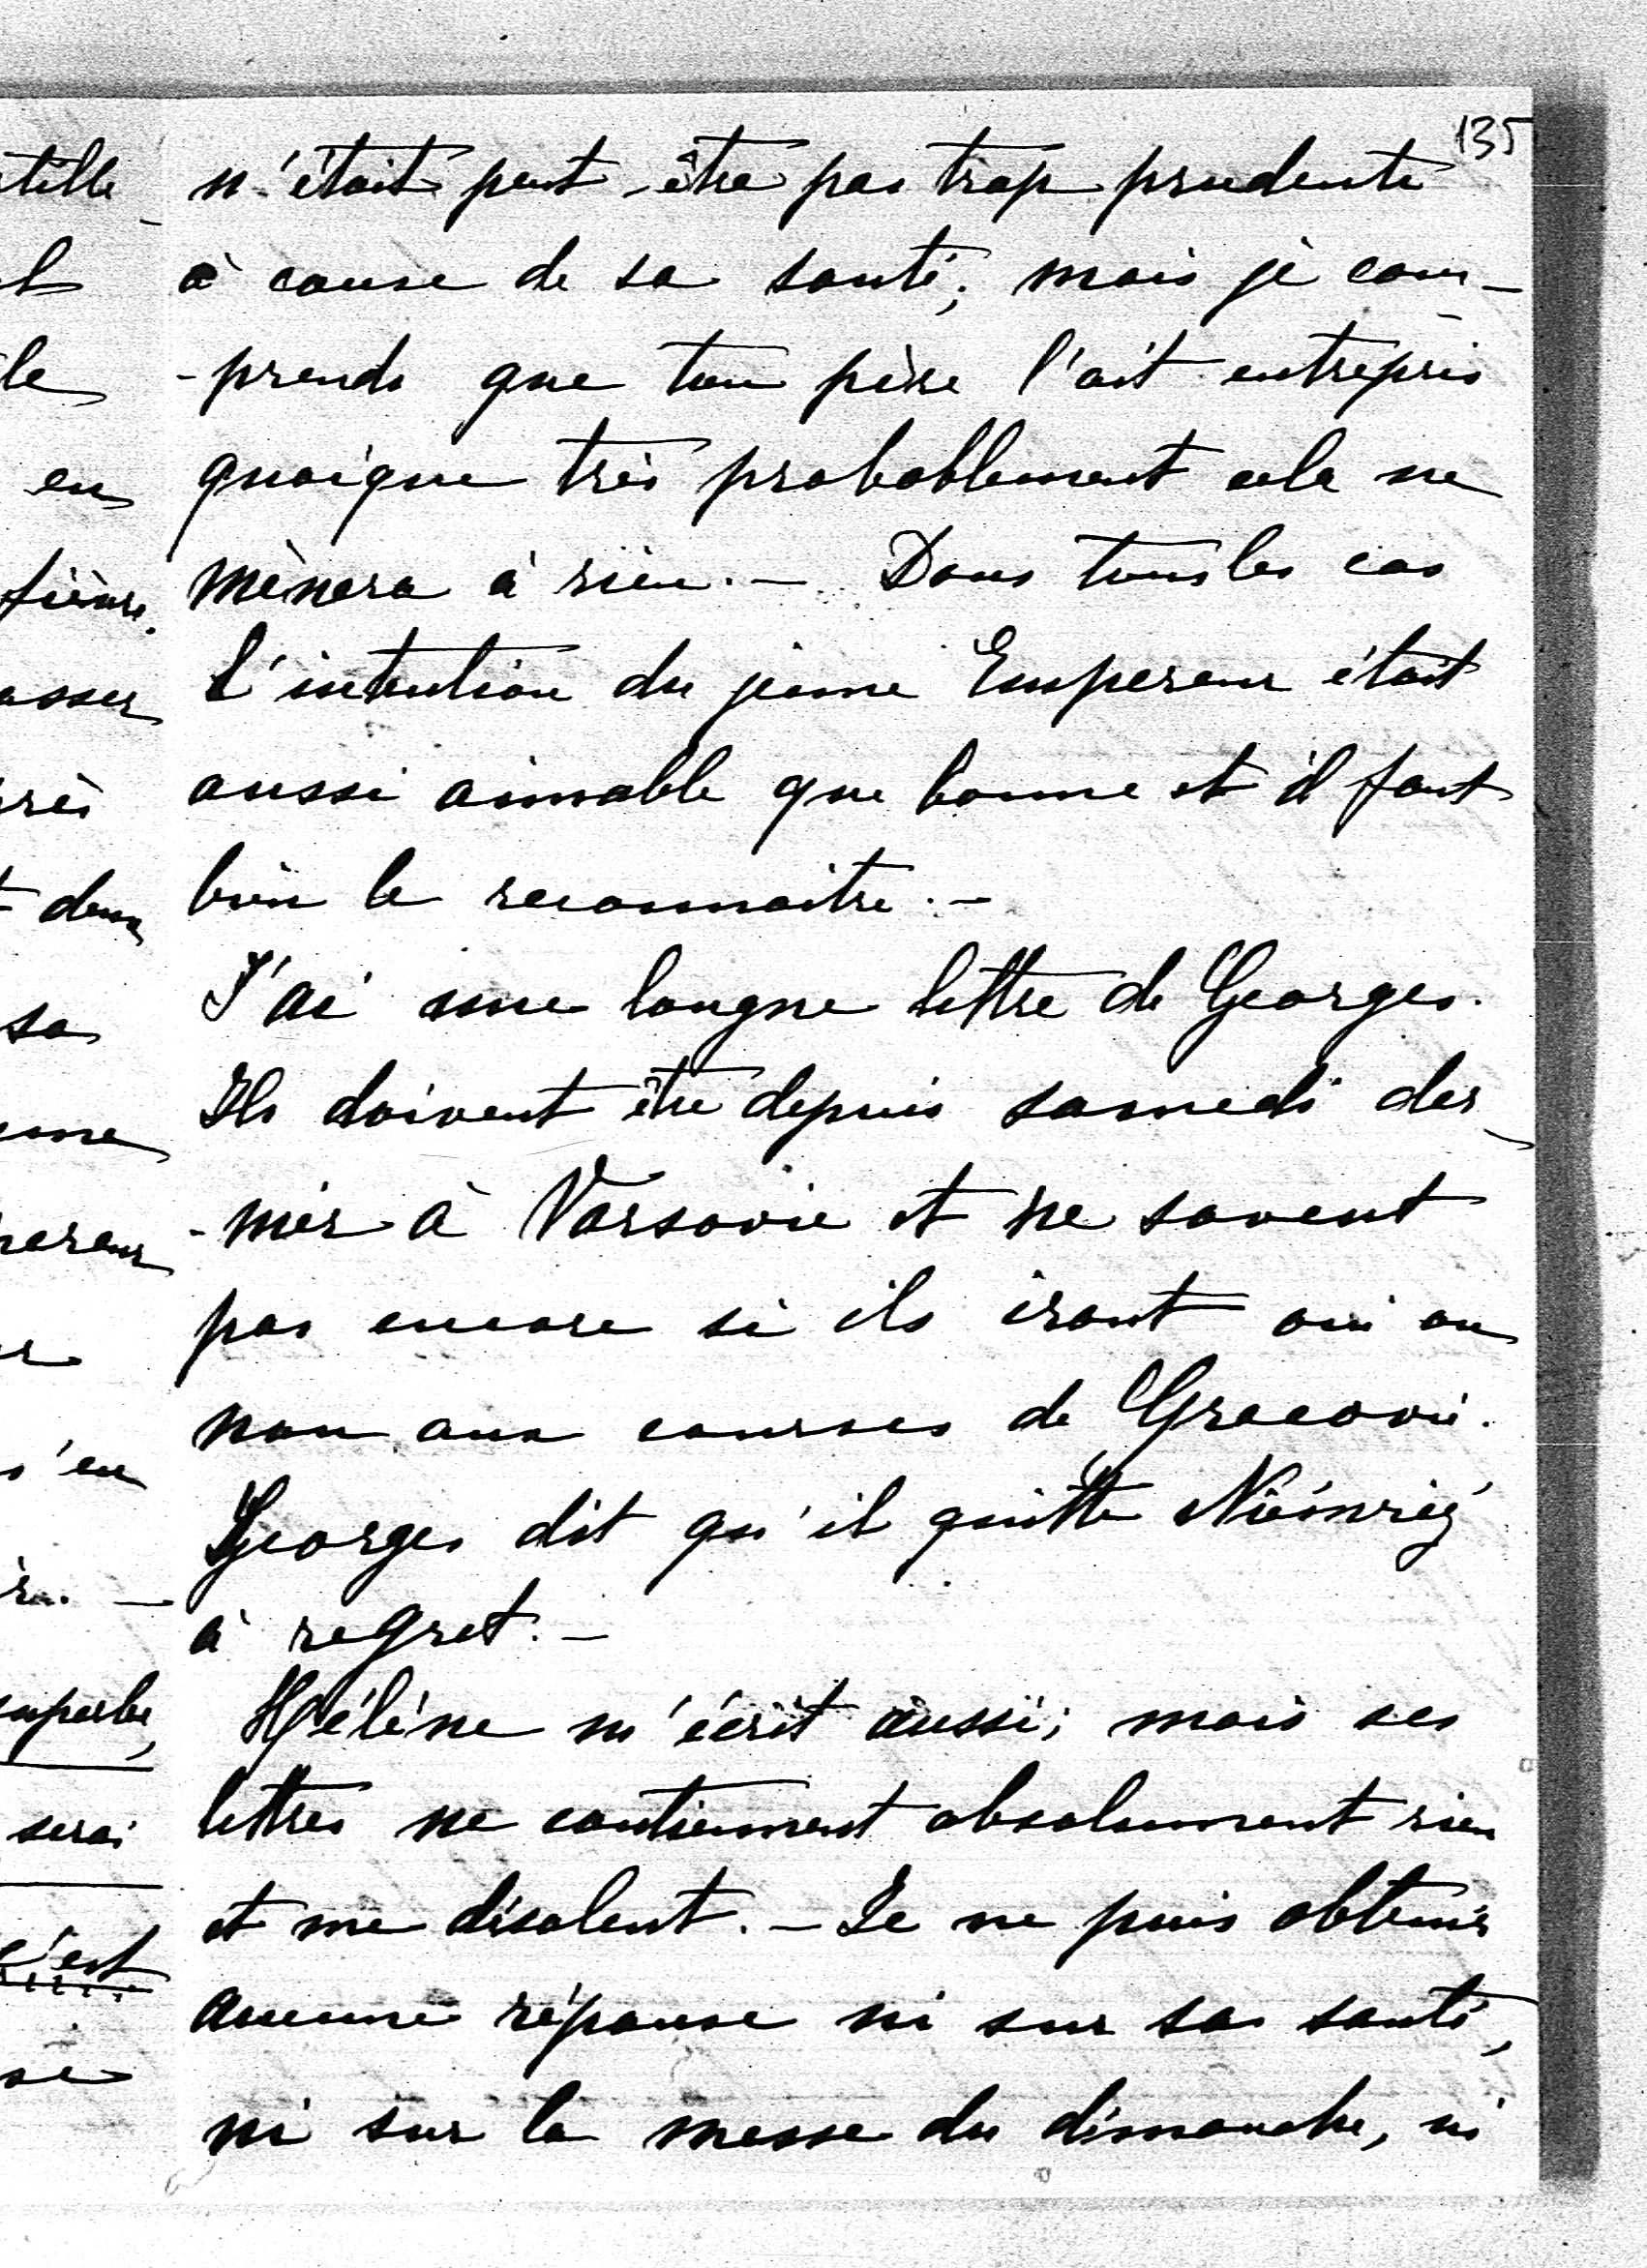 135
n'était peut-être pas trop prudente
à cause de sa santé; mais je com-
-prends que ton père l'ait entrepris
quoique très probablement cela ne
mènera à rien. — Dans tous les cas
l'intention du jeune Empereur était
aussi aimable que bonne et il faut
bien le reconnaitre. —
J'ai une longue lettre de Georges.
Ils doivent être depuis samedi der-
-nier à Varsovie et ne savent
pas encore si ils iront oui ou
non aux courses de Gracovie.
Georges dit qu'il quitte
à regret. —
Hélène m'écrit aussi; mais ses
lettres ne contiennent absolument rien
et me désolent. — Je ne puis obtenir
aucune réponse ni sur sa santé,
ni sur la messe du dimanche, ni